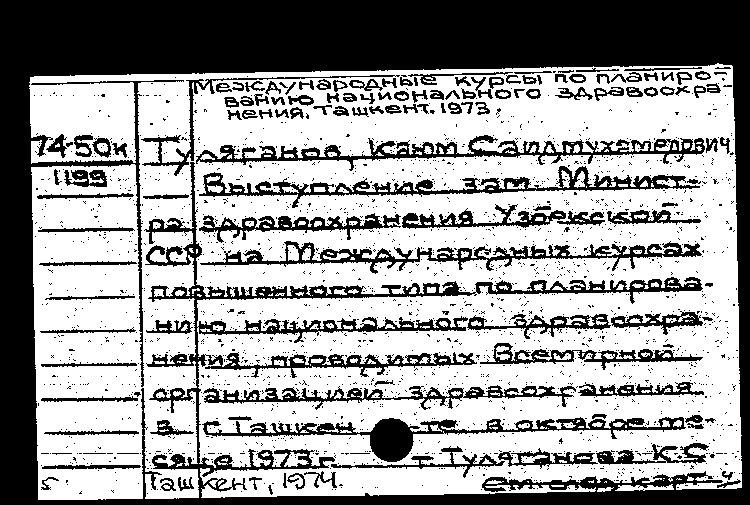 Международные курсы по планиро-
ванию национального здравоохра-
нения, Ташкент, 1973.
74-50к
1199
Туляганов, Каюм Саидмухамедович
Выступление зам Минист-
ра здравоохранения Узбекской
ССР на Международных курсах
повышенного типа по планирова-
нию национального здравоохра-
нения, проводимых Всемирной
организацией здравоохранения
в г. Ташкен-те в октябре ме-
сяце 1973 г. т. Туляганова К.С.
Ташкент, 1974.
см. след. карт-у